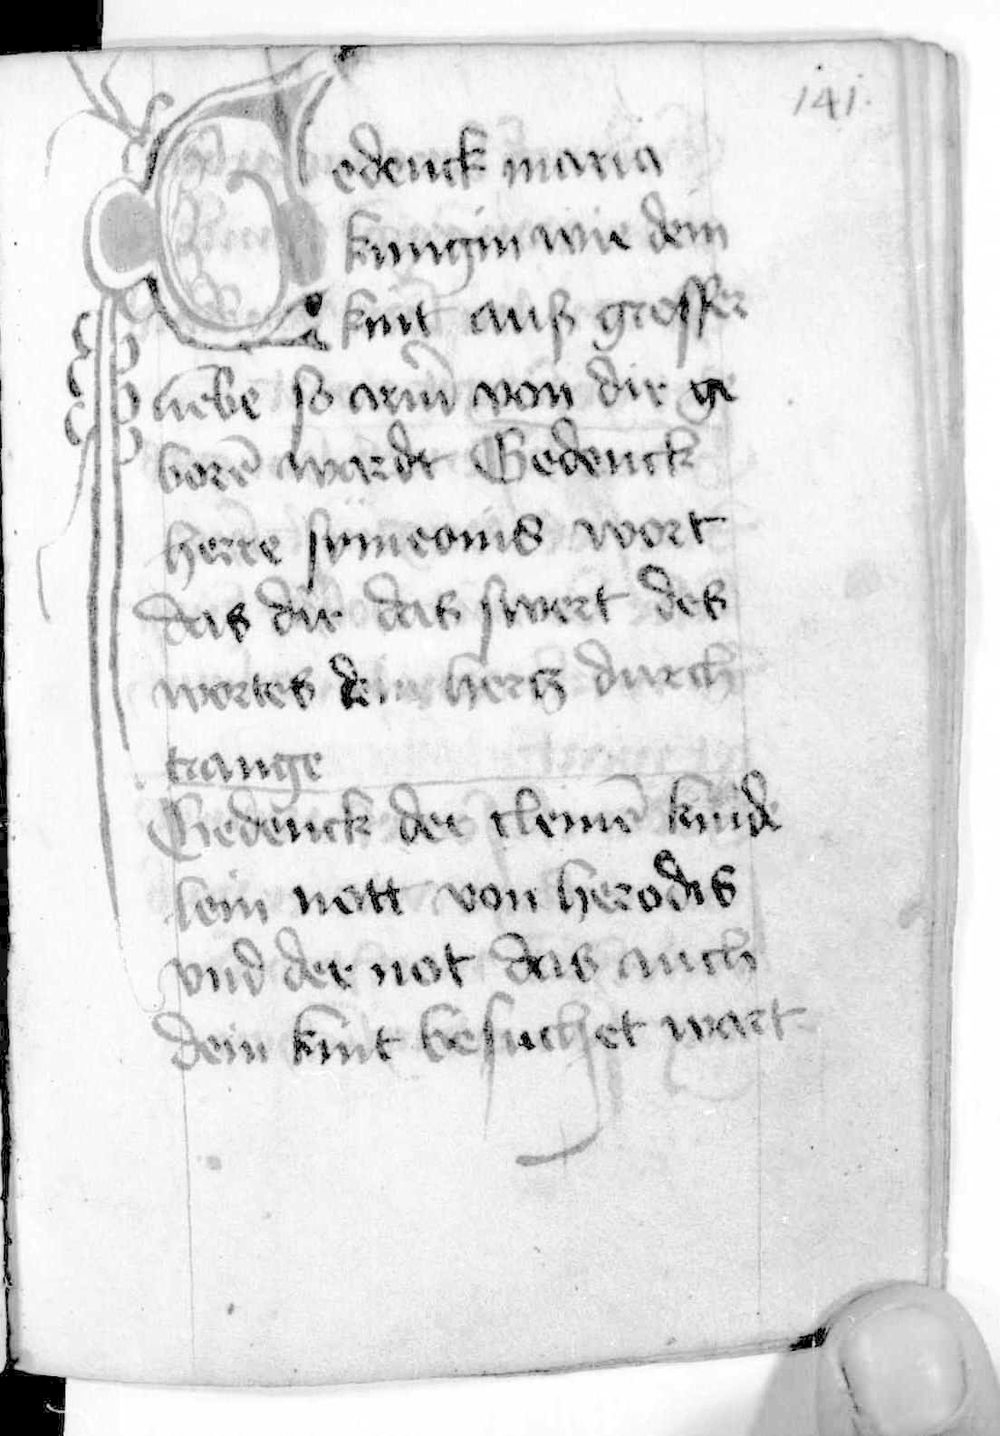 141.
Gedenck maria
kungin wie dein
kint auß grosser
liebe so arm̄ von dir ge
borē wardt Gedenck
herre symeonis wort
das dir das swert des
wortes dein hercz durch
trange
Gedenck der cleinē kinde
lein nott von herodis
vnd der not das auch
dein kint besuchet wart